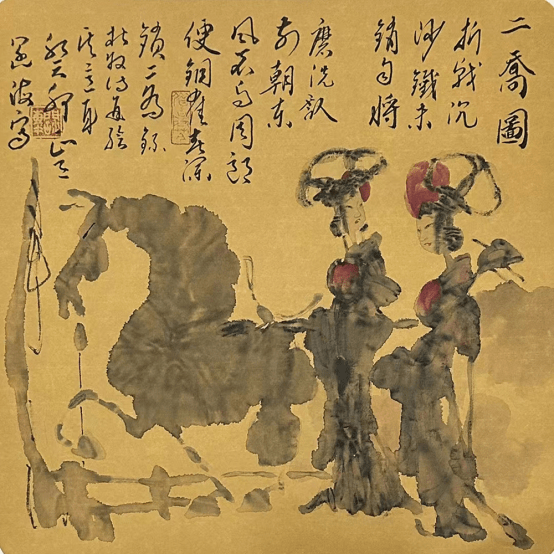 二喬圖
折戟沉
沙鐵未
銷自將
磨洗認
前朝東
風不与周郎
便銅雀春深
鎖二喬錄
杜牧詩並繪
其意耳